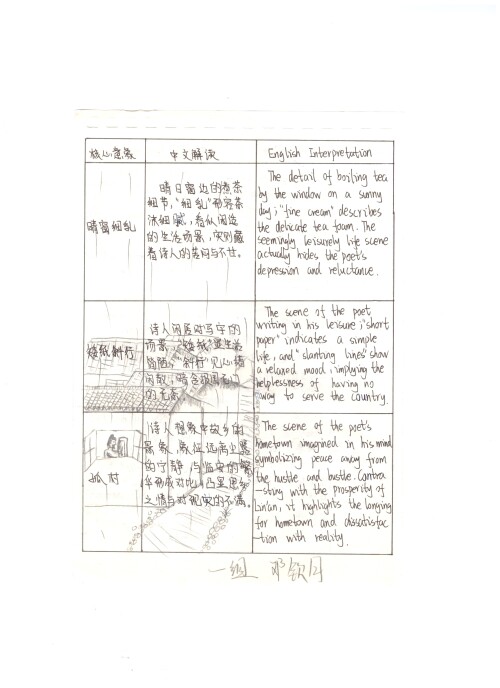 核心意象
中文解读
English Interpretation
晴窗细乳
晴日窗边的煮茶
细节,"细乳"形容茶
沫细腻,看似闲适
的生活场景,实则藏
着诗人的苦闷与不甘。
The detail of boiling tea
by the window on a sunny
day; "fine cream" describes
the delicate tea foam. The
seemingly leisurely life scene
actually hides the poet's
depression and reluctance.
矮纸斜行
诗人闲居时写字的
场景,"矮纸"显生活
简陋,"斜行"见心情
闲散,暗含报国无门
的无奈。
The scene of the poet
writing in his leisure; "short
paper" indicates a simple
life, and "slanting lines" show
a relaxed mood, implying the
helplessness of having no
way to serve the country.
孤村
诗人想象中故乡的
景象,象征远离尘嚣
的宁静,与临安的繁
华形成对比,凸显思乡
之情与对现实的不满。
The scene of the poet's
hometown imagined in his mind
symbolizing peace away from
the hustle and bustle. Contra
-sting with the prosperity of
Lin'an, it highlights the longing
for hometown and dissatisfac
-tion with reality.
一组